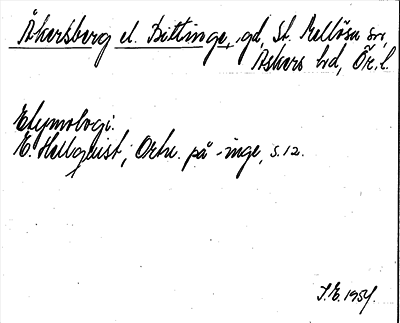 Åkersberg el. Bittinge, gd, St. Mellösa sn,
Askers hd, Ör. l.
Etymologi:
E. Hellquist, Ortn. på -inge, s. 12.
S.E. 1954.